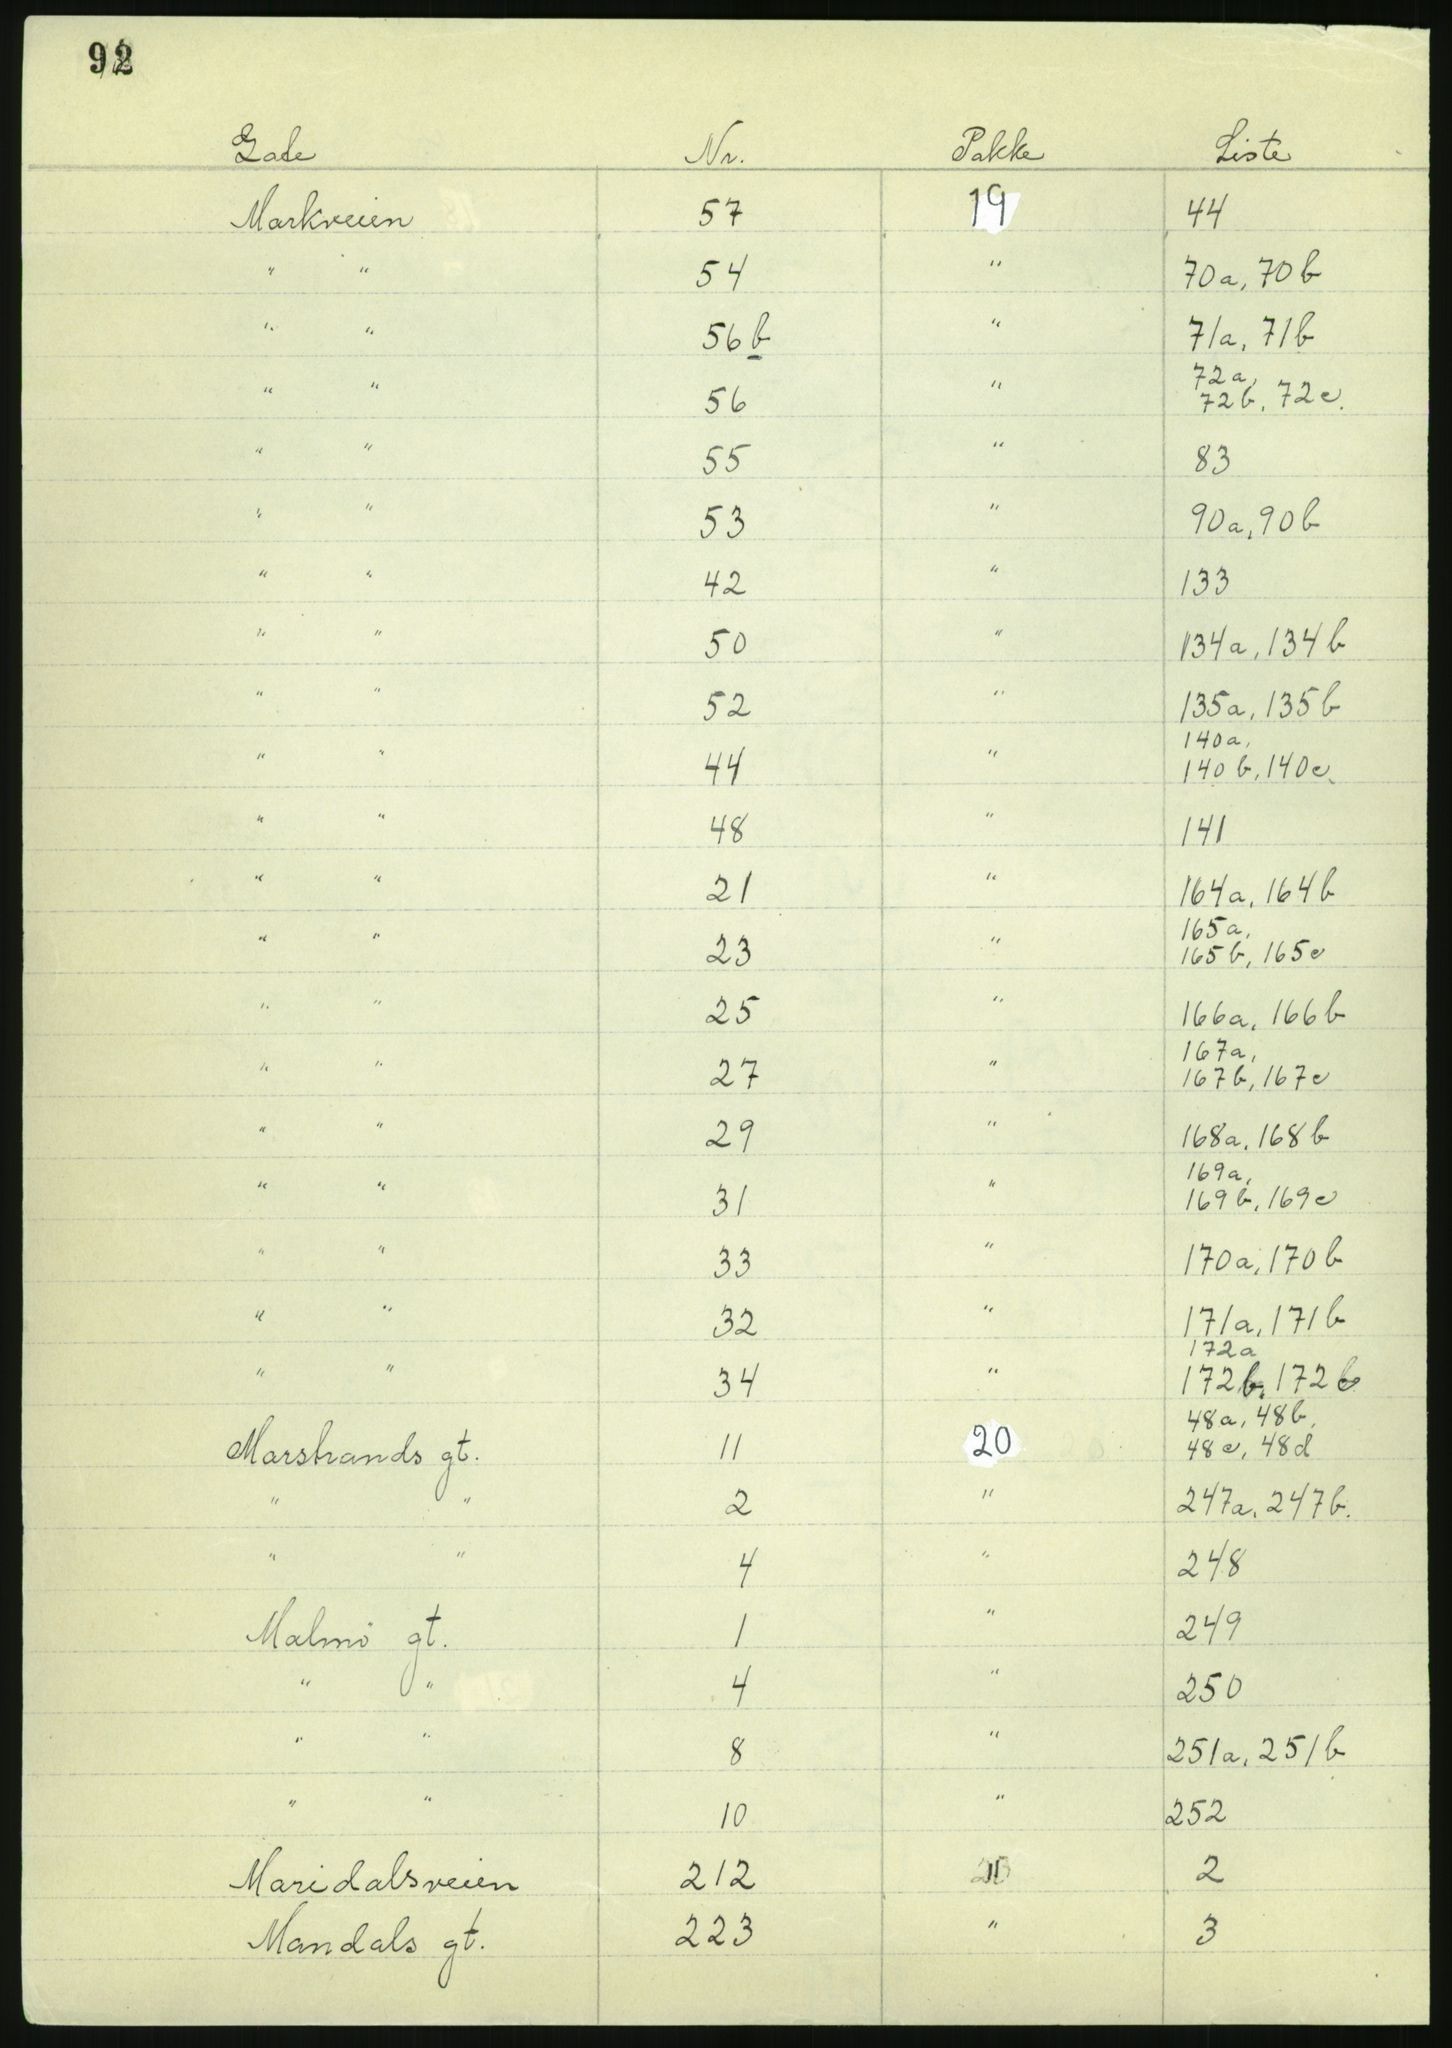 92
Gade Nr. Pakke Liste
Markveien 57 19 44
" " 54 " 70a, 70b
" " 56b " 71a, 71b
" " 56 " 72a, 72b, 72c.
" " 55 " 83
" " 53 " 90a, 90b
" " 42 " 133
" " 50 " 134a, 134b
" " 52 " 135a, 135b
" " 44 " 140a, 140b, 140c.
" " 48 " 141
" " 21 " 164a, 164b
" " 23 " 165a, 165b, 165c
" " 25 " 166a, 166b
" " 27 " 167a, 167b, 167c
" " 29 " 168a, 168b
" " 31 " 169a, 169b, 169c
" " 33 " 170a, 170b
" " 32 " 171a, 171b
" " 34 " 172a 172b, 172c
Marstrands gt. 11 20 48a, 48b, 48c, 48d
" " 2 " 247a, 247b.
" " 4 " 248
Malmö gt. 1 " 249
" " 4 " 250
" " 8 " 251a, 251b
" " 10 " 252
Maridalsveien 212 2
Mandals gt. 223 " 3